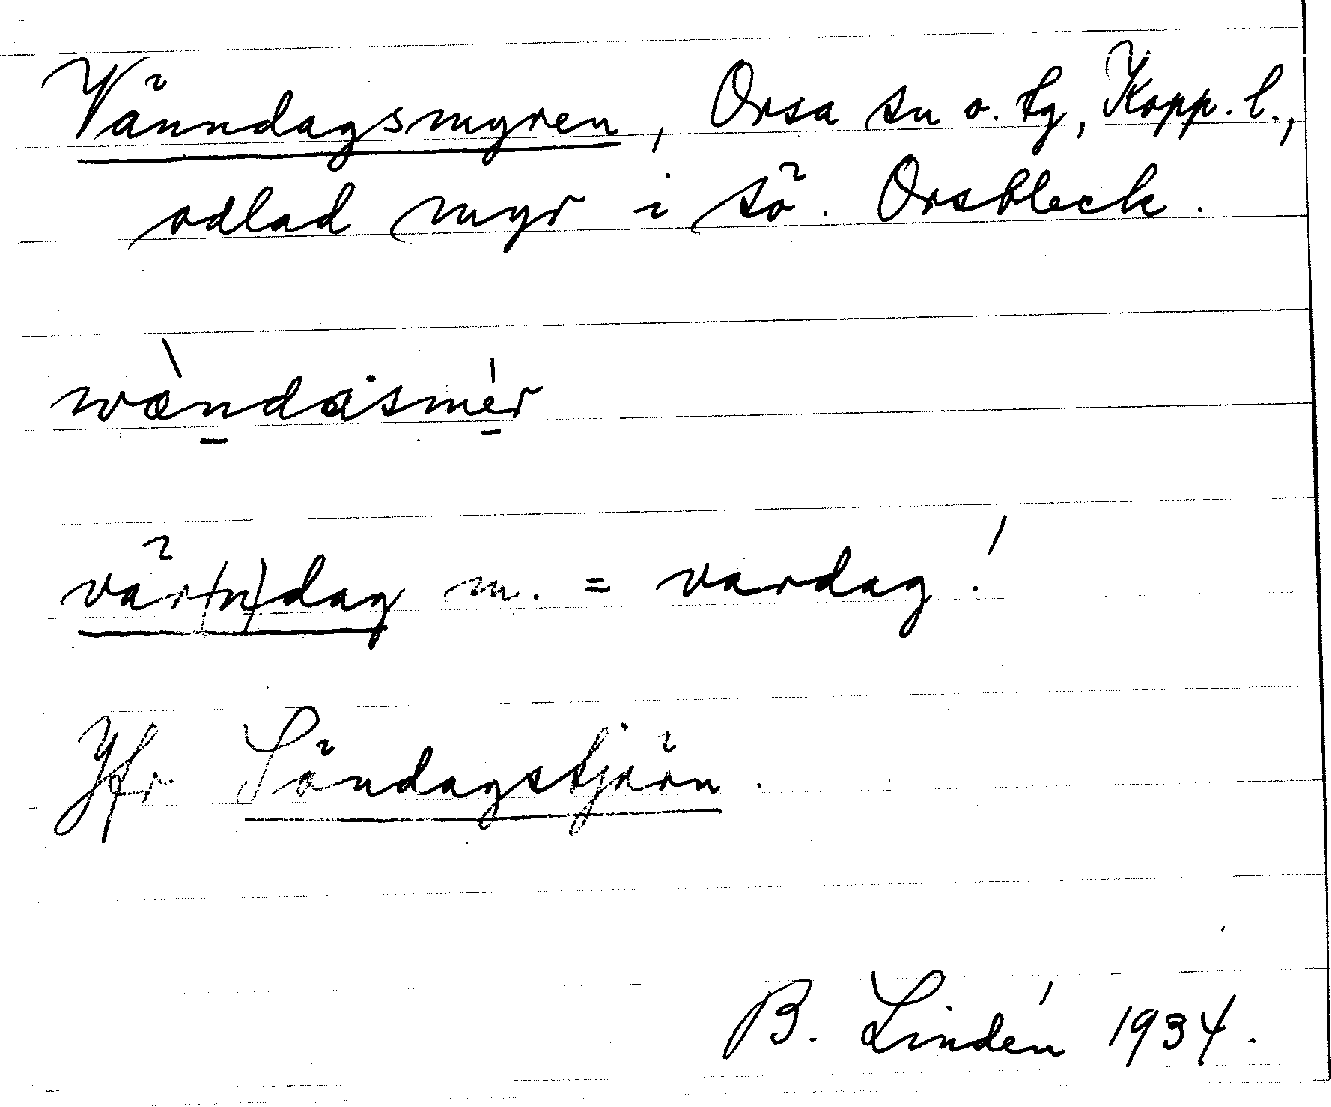 Vänndagsmyren, Orsa sn o. tg, Kopp. l.,
odlad myr i sö. Orsbleck.
wæ̀ndasmér
vär(n)dag m. = vardag!
Jfr Söndagstjärn.
B. Lindén 1934.